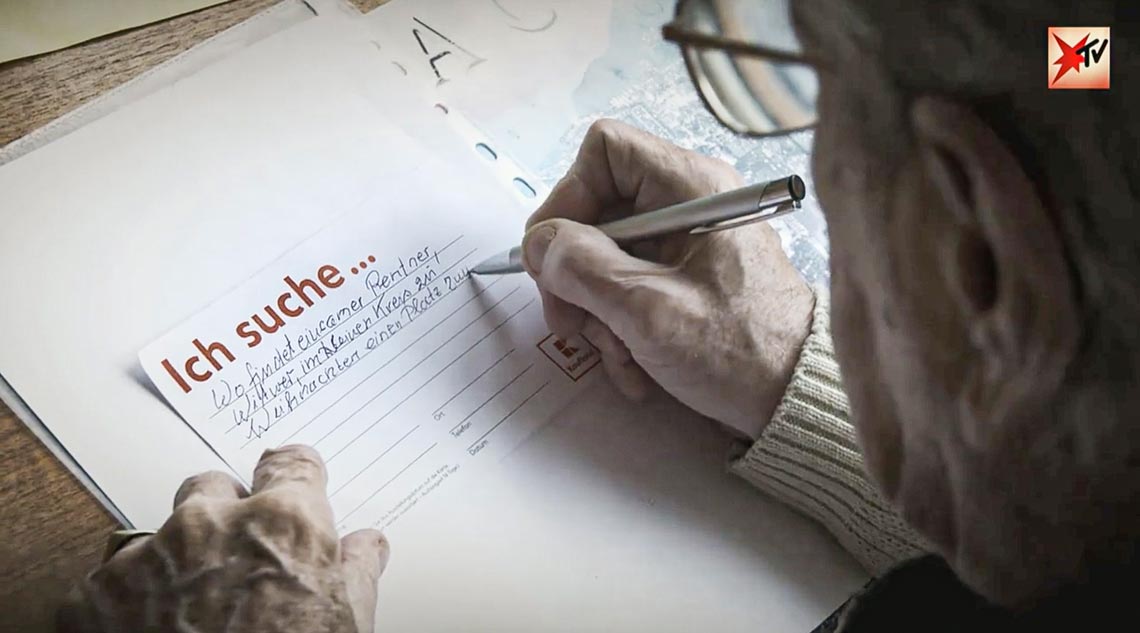 TV
A
Ich suche...
Wo findet einsamer Rentner,
Witwer, im kleinen Kreis ein
Weihnachten einen Platz zum
Kaufland
Ort
Telefon
Datum